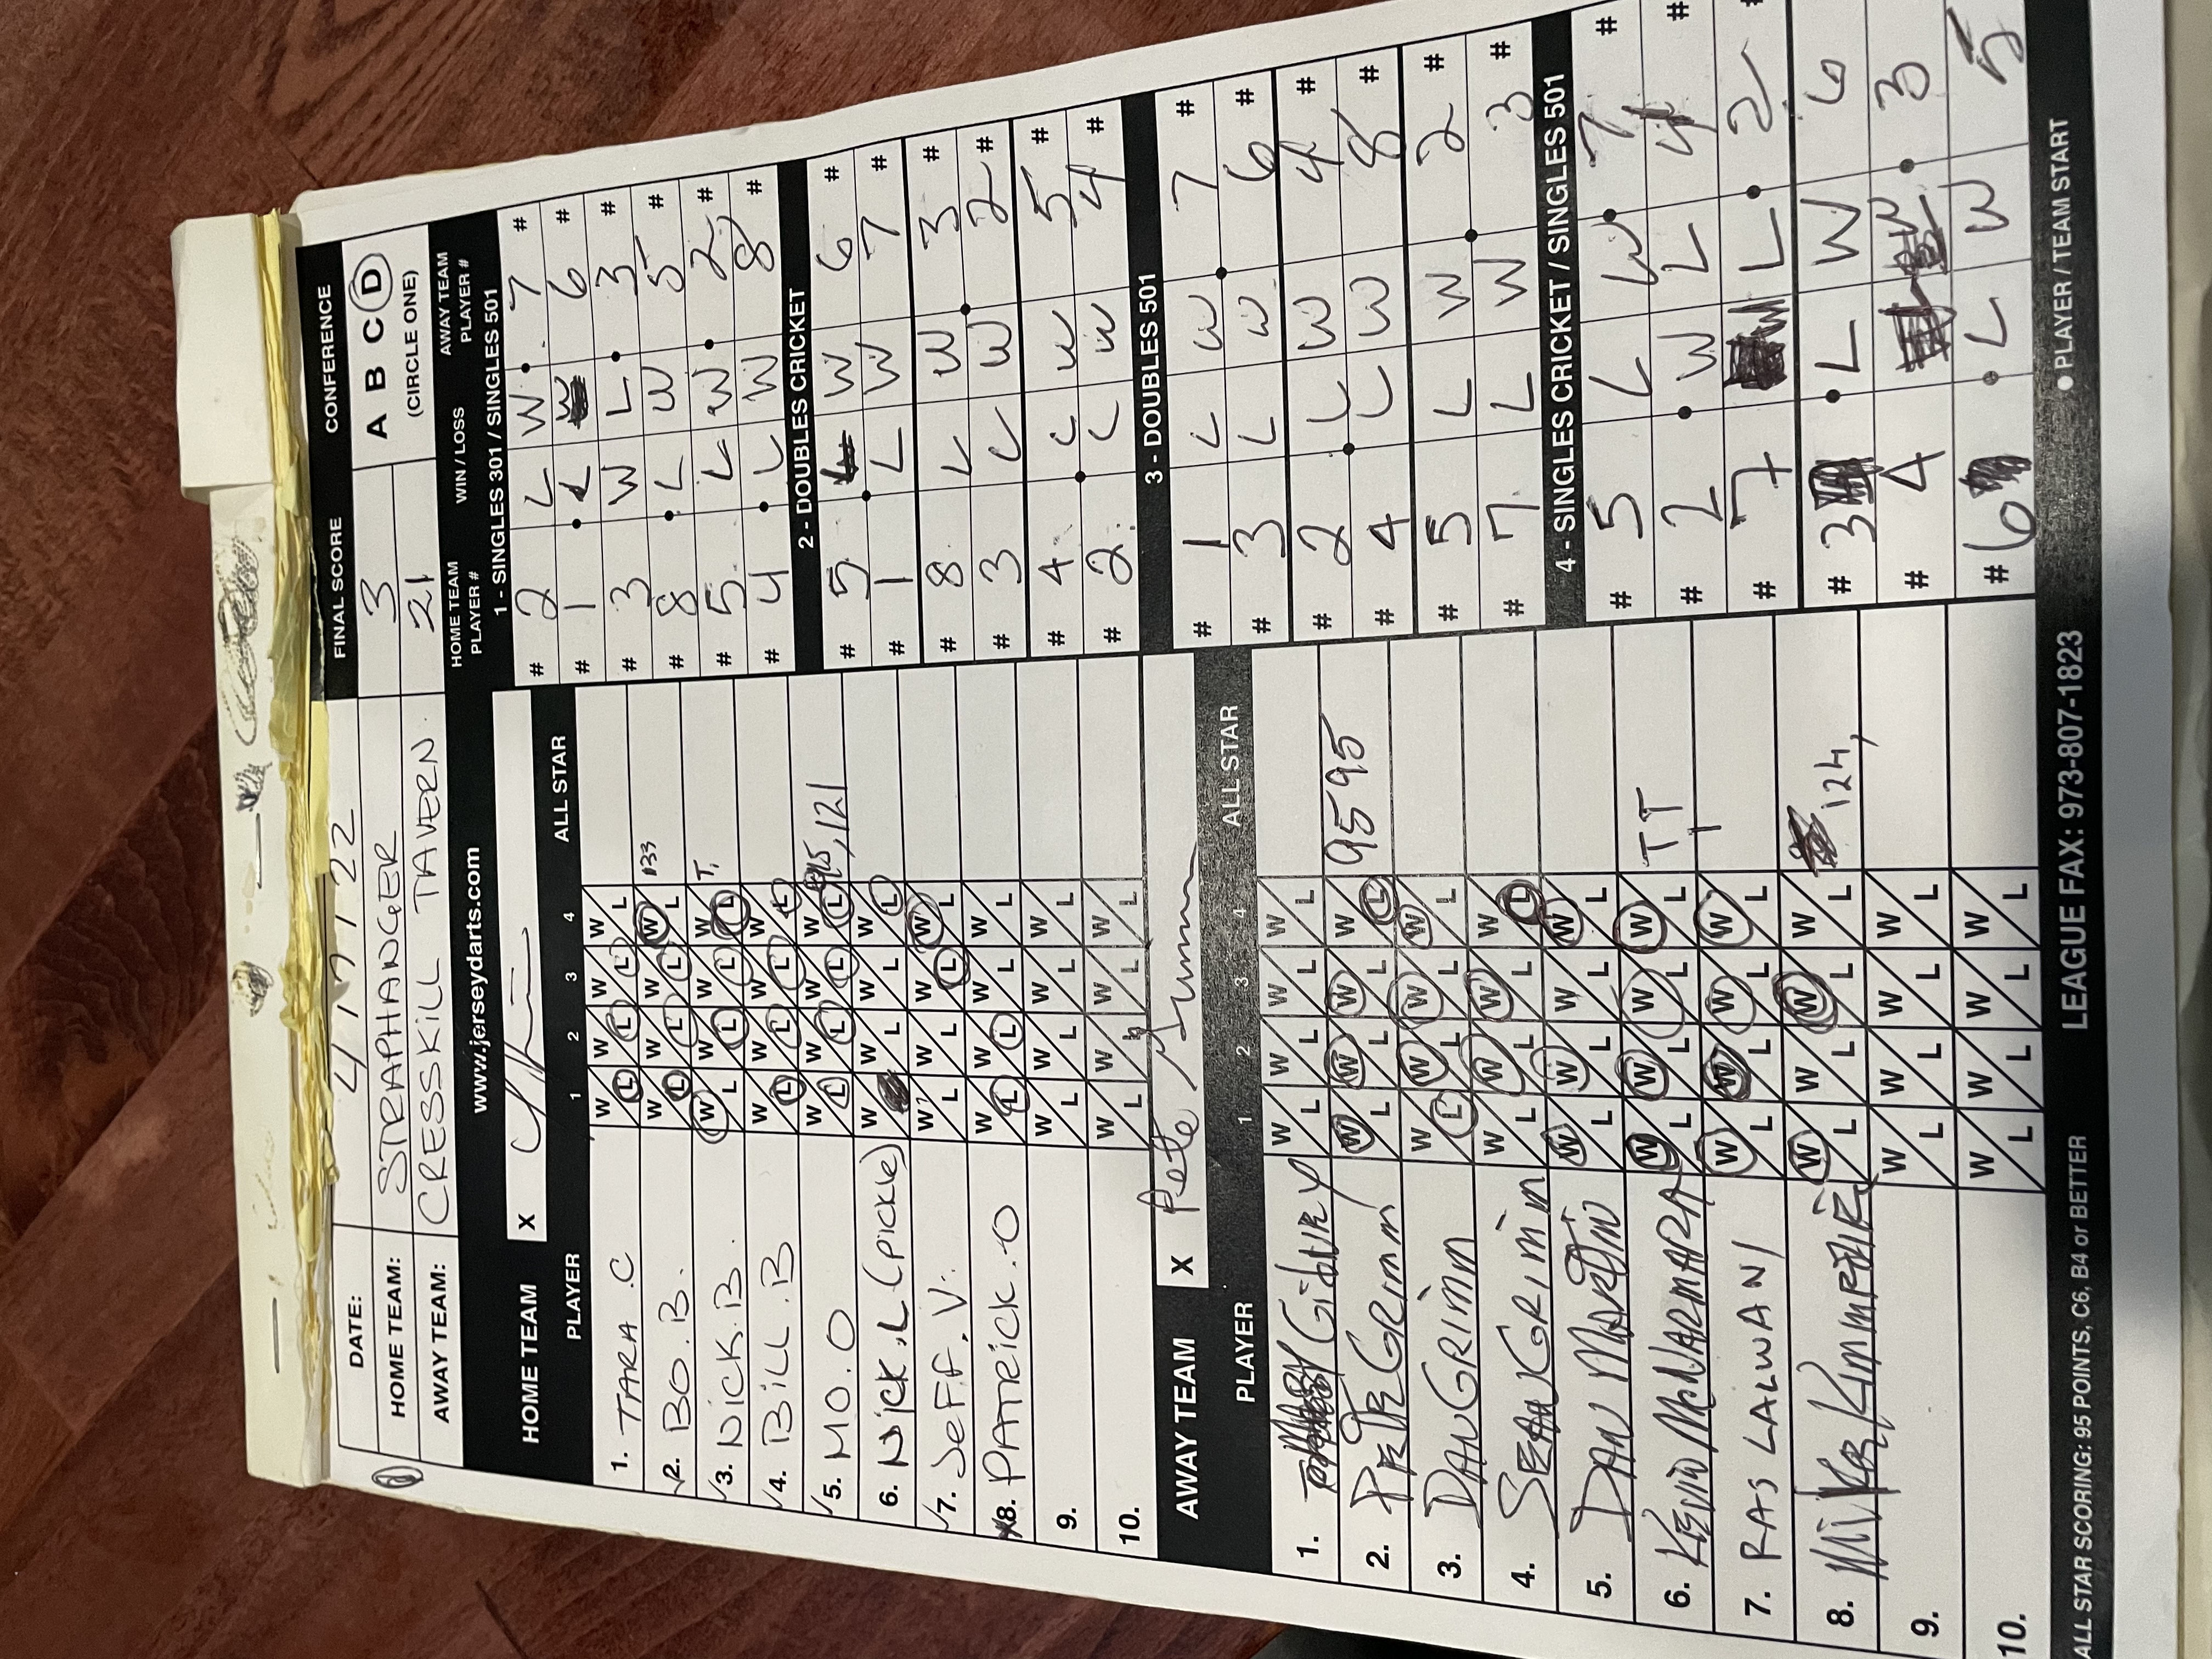 DATE: 4 / 7 / 22
FINAL SCORE CONFERENCE
HOME TEAM: STRAPHANGER 3 A B C D
AWAY TEAM: CRESSKILL TAVERN 21 (CIRCLE ONE)
www.jerseydarts.com
HOME TEAM PLAYER # WIN / LOSS AWAY TEAM PLAYER #
HOME TEAM X
PLAYER 1 2 3 4 ALL STAR
1. TARA .C W L W L W L W L
2. BO . B. W L W L W L W L 133
3. NICK.B. W L W L W L W L T,
4. BILL .B W L W L W L W L
5. MO . O W L W L W L W L 95, 121
6. NICK .L (PICKLE) W W L W L W L
7. JEFF . V. W L W L W L W L
8. PATRICK . O W L W L W L W L
9. W L W L W L W L
10. W L W L W L W L
AWAY TEAM X Pete
PLAYER 1 2 3 4 ALL STAR
1. Gibney W L W L W L W L
2. PETE GRIMM W L W L W L W L 95 95
3. DAN GRIMM W L W L W L W L
4. SEAN GRIMM W L W L W L W L
5. DAN MARTINO W L W L W L W L
6. KEVIN MCNARMARA W L W L W L W L TT
7. RAS LALWANI W L W L W L W L
8. W L W L W L W L 124,
9. W L W L W L W L
10. W L W L W L W L
1 - SINGLES 301 / SINGLES 501
# 2 L W 7 #
# 1 L W 6 #
# 3 W L 3 #
# 8 L W 5 #
# 5 L W 2 #
# 4 L W 8 #
2 - DOUBLES CRICKET
# 5 L W 6 #
# 1 L W 7 #
# 8 L W 3 #
# 3 L W 2 #
# 4 L W 5 #
# 2 L W 4 #
3 - DOUBLES 501
# 1 L W 7 #
# 3 L W 6 #
# 2 L W 4 #
# 4 L W 8 #
# 5 L W 2 #
# 7 L W 3 #
4 - SINGLES CRICKET / SINGLES 501
# 5 L W 7 #
# 2 W L 4 #
# 7 W L 2
# 3 L W 6
# 4 W 3
# 6 L W 5
ALL STAR SCORING: 95 POINTS, C6, B4 or BETTER LEAGUE FAX: 973-807-1823 ● PLAYER / TEAM START